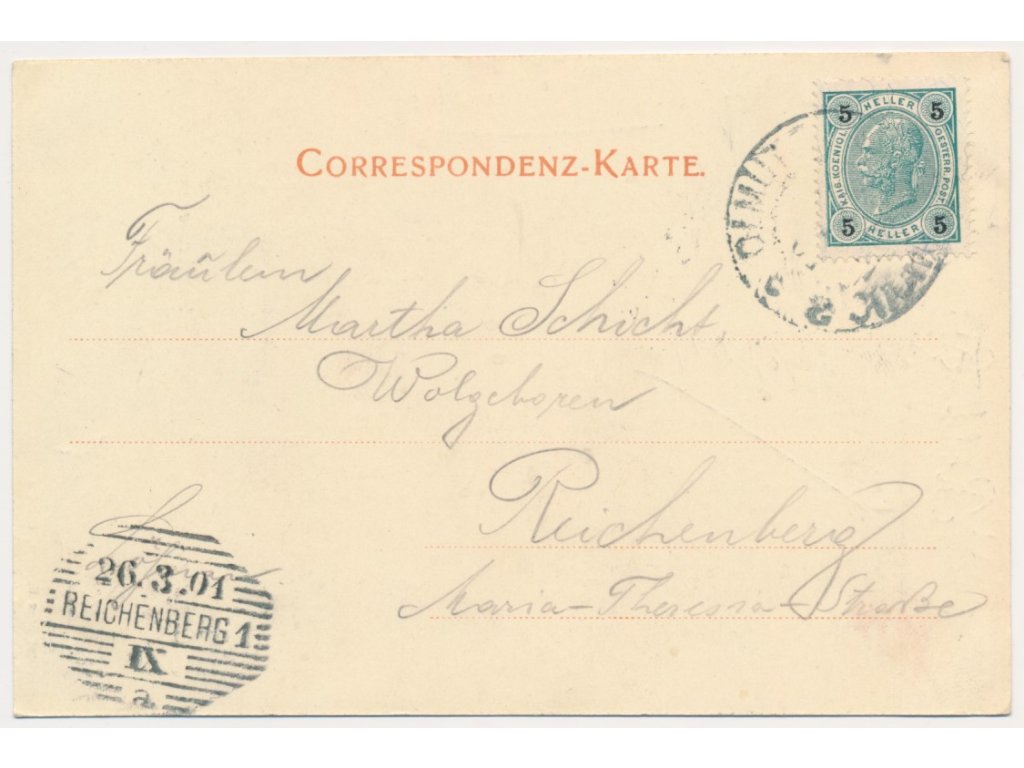 CORRESPONDENZ-KARTE.
5 HELLER 5
KAIS. KOENIGL. OESTERR. POST.
5 HELLER 5
OLMÜTZ
2
Fräulein
Martha Schicht,
Wolgeboren
Reichenberg
Maria-Theresia-Straße
26.3.01
REICHENBERG 1
IX
a